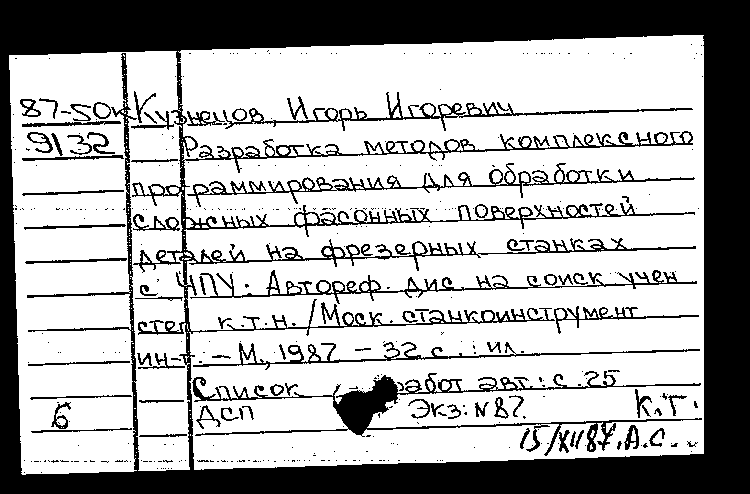 87-50к Кузнецов, Игорь Игоревич
9132 Разработка методов комплексного
программирования для обработки
сложных фасонных поверхностей
деталей на фрезерных станках
с ЧПУ: Автореф. дис. на соиск учен
степ к.т.н. /Моск. станкоинструмент
ин-т. – М., 1987 – 32 с. : ил.
Список работ авт.: с. 25
Б ДСП Экз: N87. К.Г.
15/XII87. А.С.